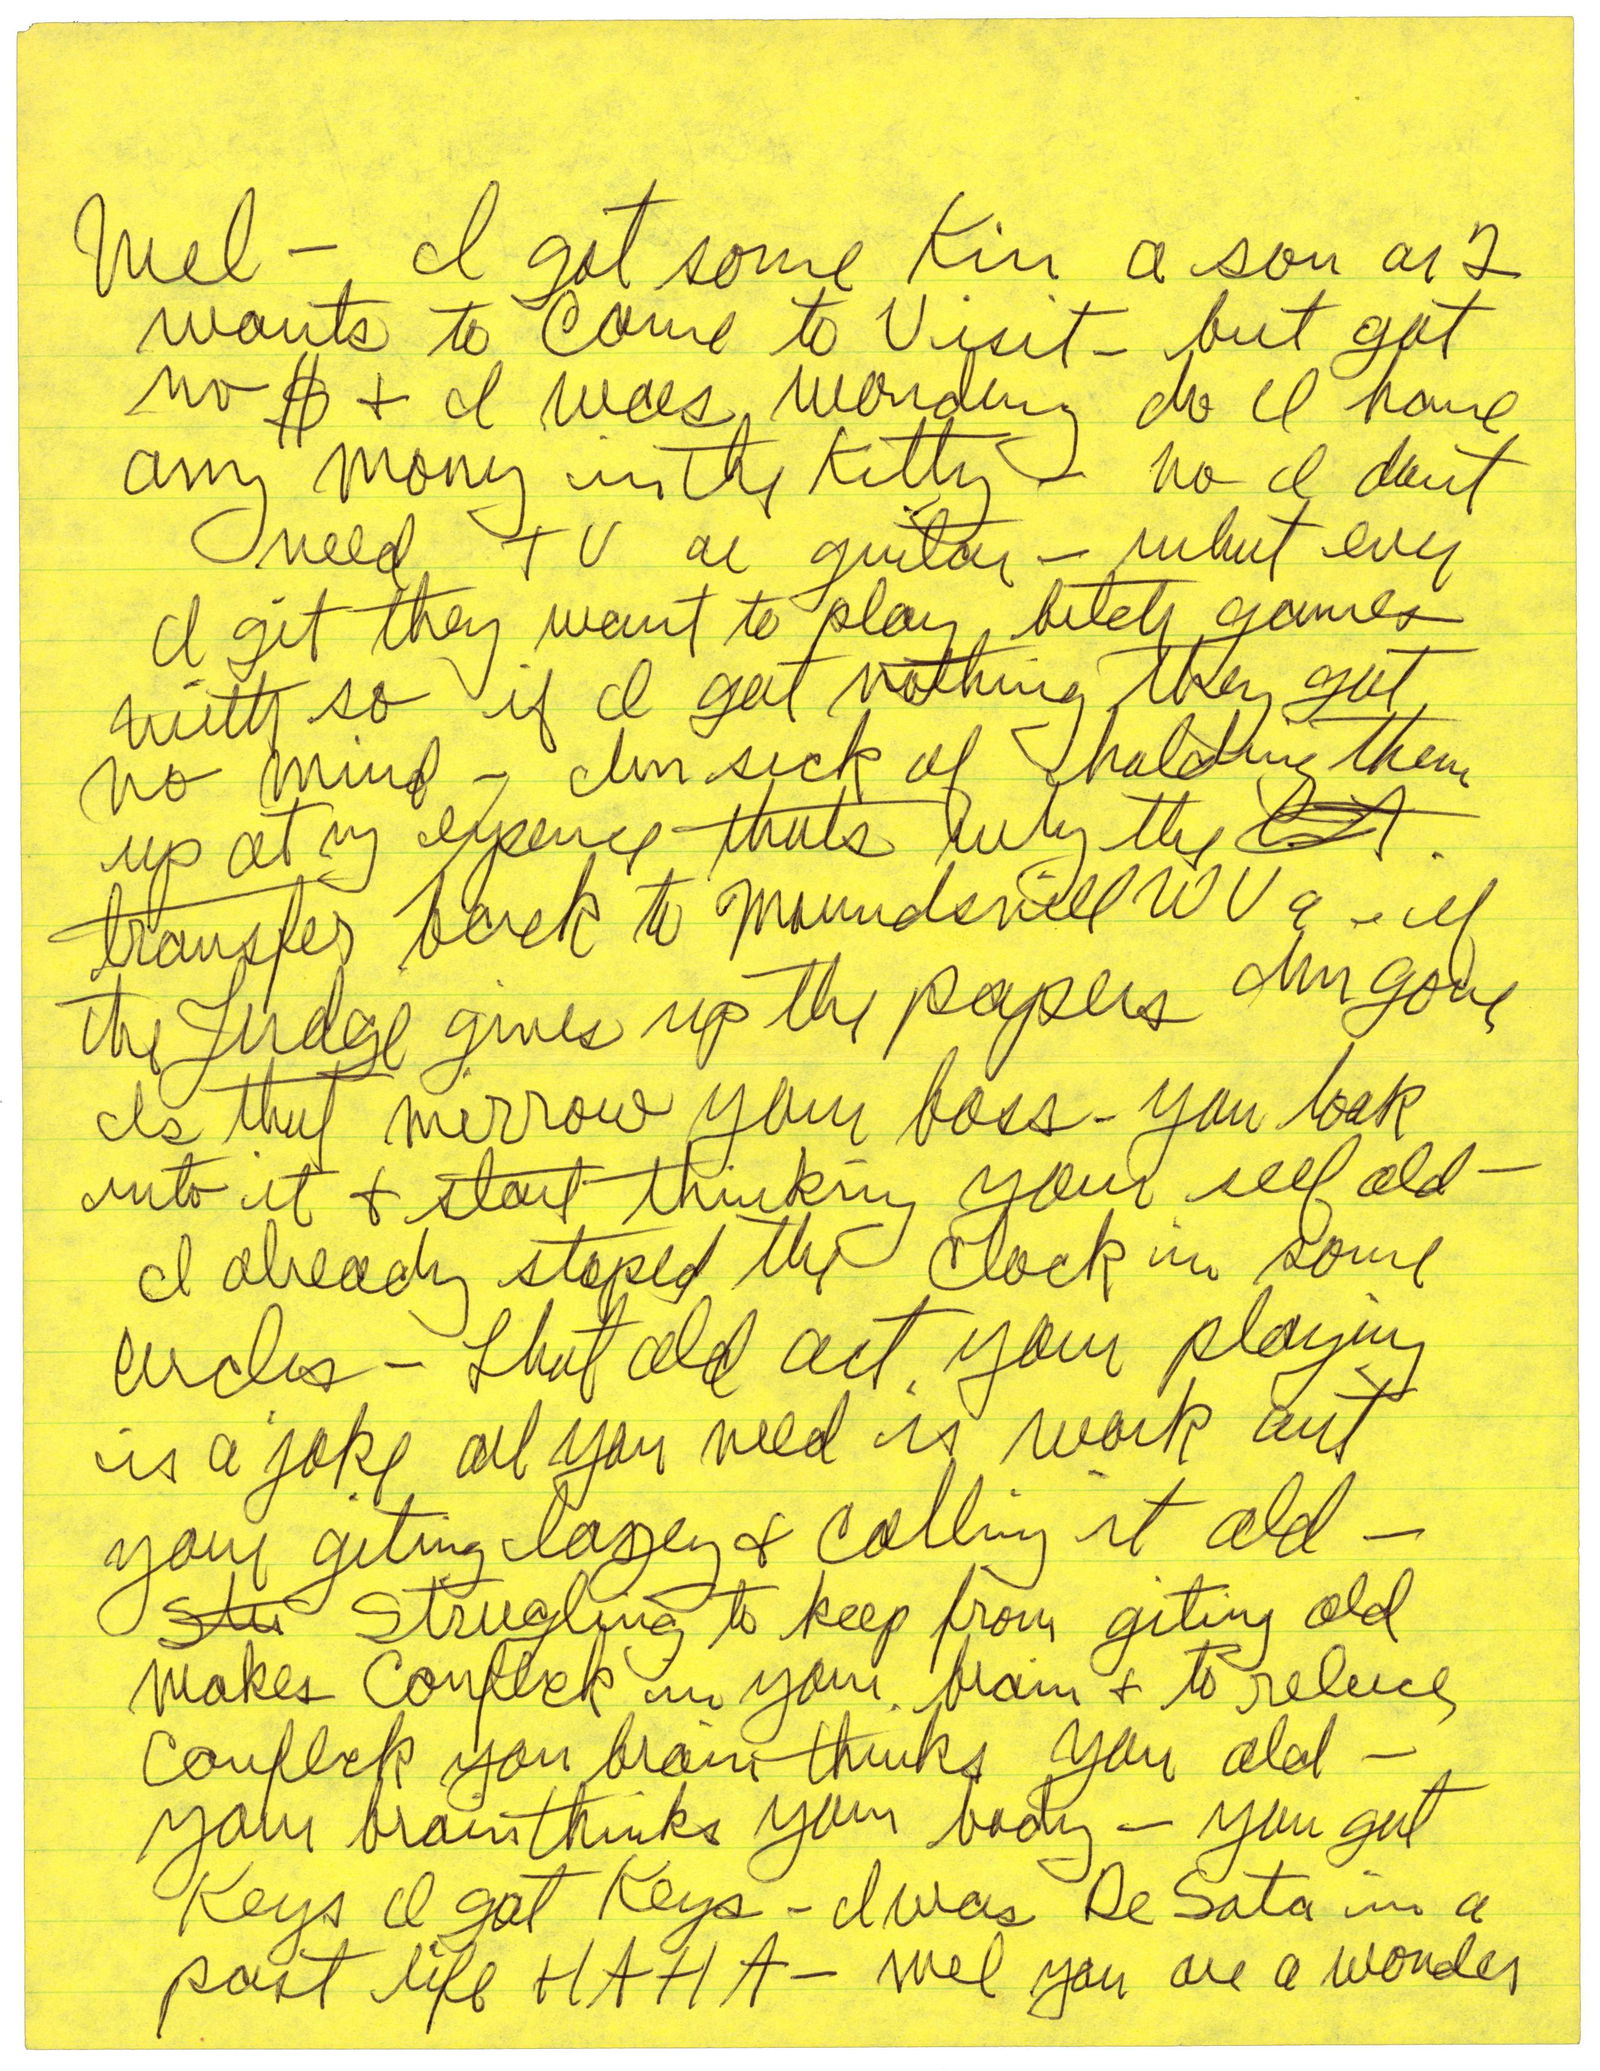 Mel - I got some Kin a son or 2
wants to Come to Visit - but got
no $ + I was wonding do I have
any mony in the Kitty - no I dont
need TV or guitar - what ever
I git they want to play bitch games
with so if I got nothing they got
no mind - Im sick of holding them
up at my expence thats why the
transfer back to Moundsvill W Va - if
the Judge gives up the papers Im gone
Is that mirrow your boss - you look
into it & start thinking your self old -
I already stoped the Clock in some
circles - that old act your playing
is a joke all you need is work out
your giting lazzey & calling it old -
Stru Strugling to keep from giting old
makes Conflick in your brain & to releice
Conflick you brain thinks you old -
your brain thinks your body - you got
Keys I got Keys - I was De Sota in a
past life HAHA - Mel you are a wonder